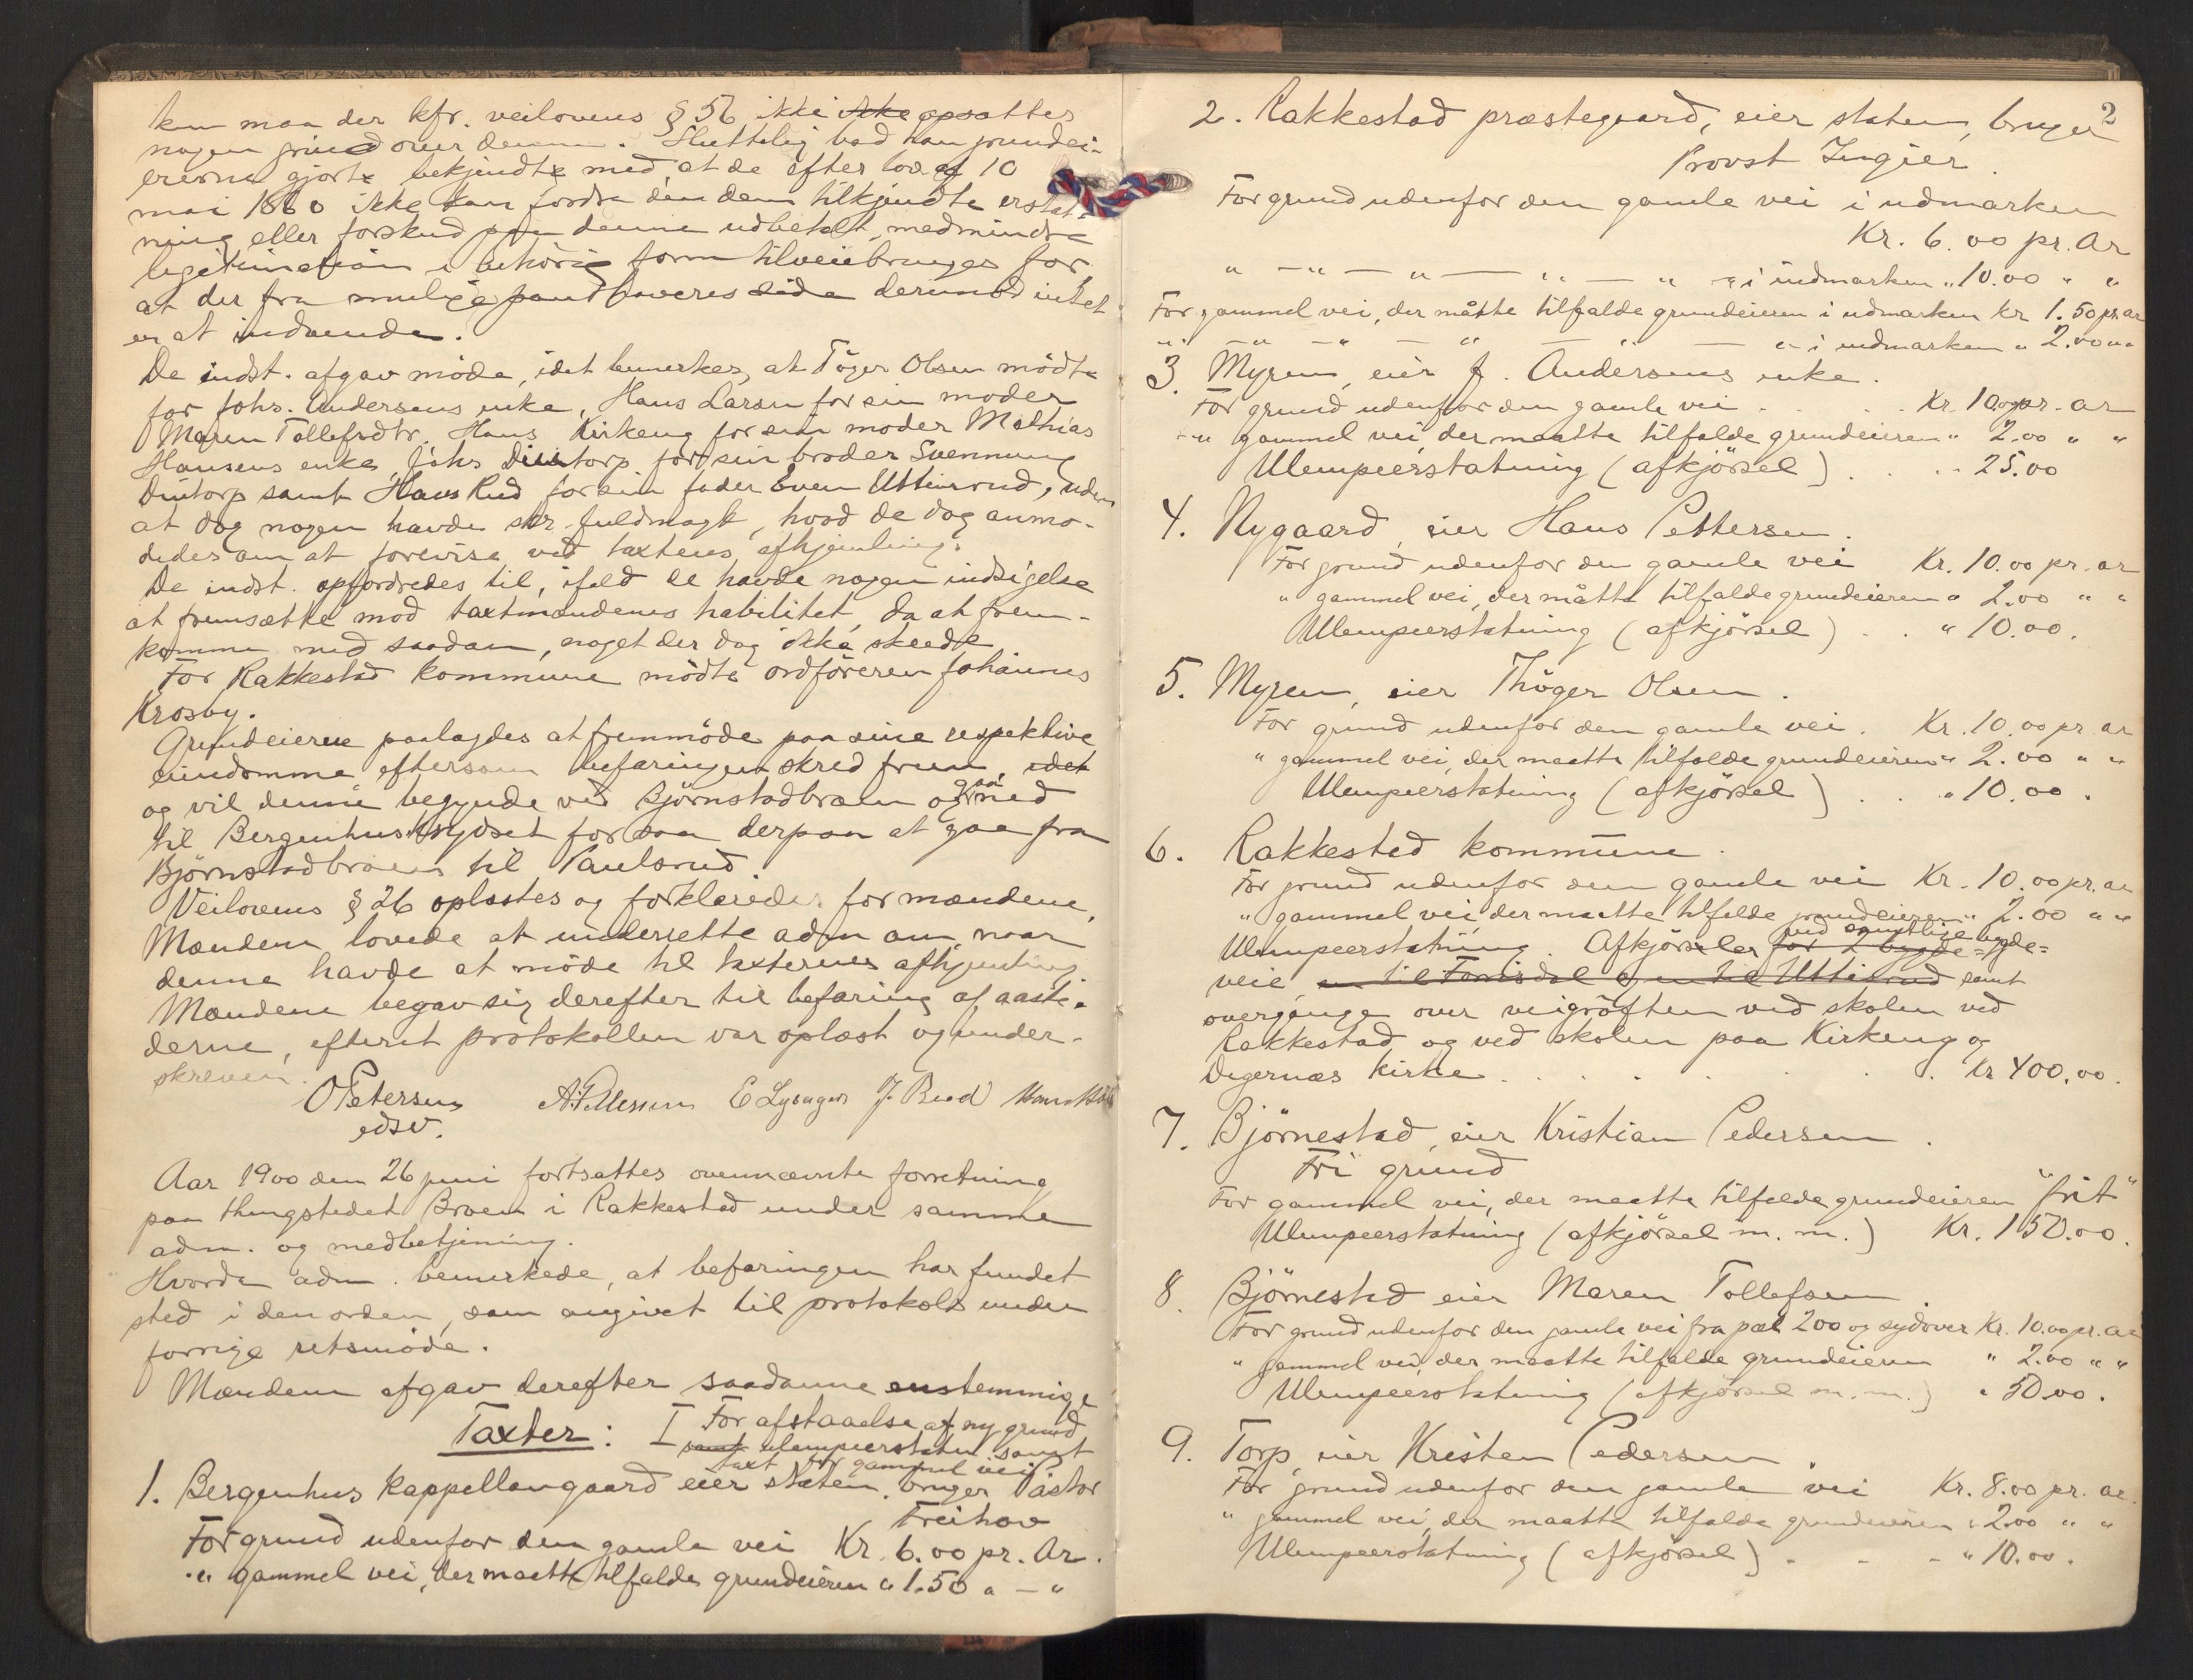 kun maa der kfr. veilovens § 56 ikke ikke opsættes
nogen grind over denne. Sluttelig bad han grundei-
ererne gjort bekjendte med, at de efter lov af 10
mai 1860 ikke kan fordre den dem tilkjendte erstat-
ning eller forskud paa denne udbetalt, medmindre
legitimation i behörig form tilveiebringes for,
at der fra mulige panthaveres side derimod intet
er at indvende.
De indst. afgav möde, idet bemerkes, at Töger Olsen mödte
for Johs. Andersens enke, Hans Larsen for sin moder
Maren Tollefsdtr. Hans Kirkeng for sin moder Mathias
Hansens enke, Johs Dintorp for sin broder Svenning
Dintorp samt Hans Rud for sin fader Even Uttisrud, uden
at dog nogen havde skr. fuldmagt, hvad de dog anmo-
dedes om at forevise ved taxtens afhjemling.
De indst. opfordredes til, ifald de havde nogen indsigelse
at fremsætte mod taxtmændenes habilitet, da at frem-
komme med saadan, noget der dog ikke skeede
For Rakkestad kommune mödte ordföreren Johannes
Krosby.
Grundeierne paalagdes at fremmöde paa sine respektive
eiendomme eftersom befaringen skred frem, idet
og vil denne begynde ved Björnstadbroen og gaa ned
til Bergenhuskrydset for saa derpaa at gaa fra
Björnstadbroen til Paulsrud.
Veilovens § 26 oplæstes og forklaredes for mændene.
Mændene lovede at underrette adm om, naar
denne havde at möde til taxternes afhjemling.
Mændene begav sig derefter til befaring af aaste-
derne, efterat protokollen var oplæst og under-
skreven.
O Petersen A. Pettersen E Lysager J. Bud
edsv.
Aar 1900 den 26 juni fortsattes ovennævnte forretning
paa thingstedet Broen i Rakkestad under samme
adm. og medbetjening.
Hvorda adm. bemerkede, at befaringen har fundet
sted i den orden, som angivet til protokols under
forrige retsmöde.
Mændene afgav derefter saadanne enstemmige
Taxter: I For afstaaelse af ny grund
samt ulempeerstatn samt
taxt for gammel vei
1. Bergenhus kappellangaard eier staten, bruger Pastor
Freihow
For grund udenfor den gamle vei Kr. 6.00 pr. Ar.
" gammel vei, der maatte tilfalde grundeieren " 1.50 " — "
2
2. Rakkestad præstegaard, eier staten, bruger
Provst Ingier
For grund udenfor den gamle vei i udmarken
Kr. 6.00 pr. Ar
" — " — " — " — " — " i indmarken " 10.00 " "
For gammel vei, der måtte tilfalde grundeieren i udmarken kr 1.50 pr. ar
" — " — " — " — " — " i indmarken " 2.00 " "
3. Myren, eier J. Andersens enke.
For grund udenfor den gamle vei . . . Kr. 10.00 pr. ar
" gammel vei der maatte tilfalde grundeieren " 2.00 " "
Ulempeerstatning (afkjörsel) . . . 25.00
4. Nygaard, eier Hans Pettersen.
For grund udenfor den gamle vei Kr. 10.00 pr. ar
" gammel vei, der måtte tilfalde grundeieren " 2.00 " "
Ulempeerstatning (afkjörsel) . . " 10.00.
5. Myren, eier Thöger Olsen.
For grund udenfor den gamle vei. Kr. 10.00 pr. ar
" gammel vei, der maatte tilfalde grundeieren " 2.00 " "
Ulempeerstatning (afkjörsel) . . . " 10.00.
6. Rakkestad kommune.
For grund udenfor den gamle vei Kr. 10.00 pr. ar
" gammel vei der maatte tilfalde grundeieren " 2.00 " "
ved samtlige bygde=
Ulempeerstatning. Afkjörseler for 2 bygde=
veie, en til Fonisdal og en til Uttisrud samt
overgange over veigröften ved skolen ved
Rakkestad og ved skolen paa Kirkeng og
Degernæs kirke . . . . . . . Kr 400.00.
7. Björnestad, eier Kristian Pedersen.
Fri grund
For gammel vei, der maatte tilfalde grundeieren "frit"
Ulempeerstatning (afkjörsel m. m.) Kr. 150.00.
8. Björnestad eier Maren Tollefsen.
For grund udenfor den gamle vei fra pæl 200 og sydover Kr. 10.00 pr. ar
" gammel vei, der maatte tilfalde grundeieren " 2.00 " "
Ulempeerstatning (afkjörsel m. m.) " 50.00.
9. Torp, eier Kristen Pedersen.
For grund udenfor den gamle vei Kr. 8.00 pr. ar.
" gammel vei, der maatte tilfalde grundeieren " 2.00 " "
Ulempeerstatning (afkjörsel) . . . " 10.00.